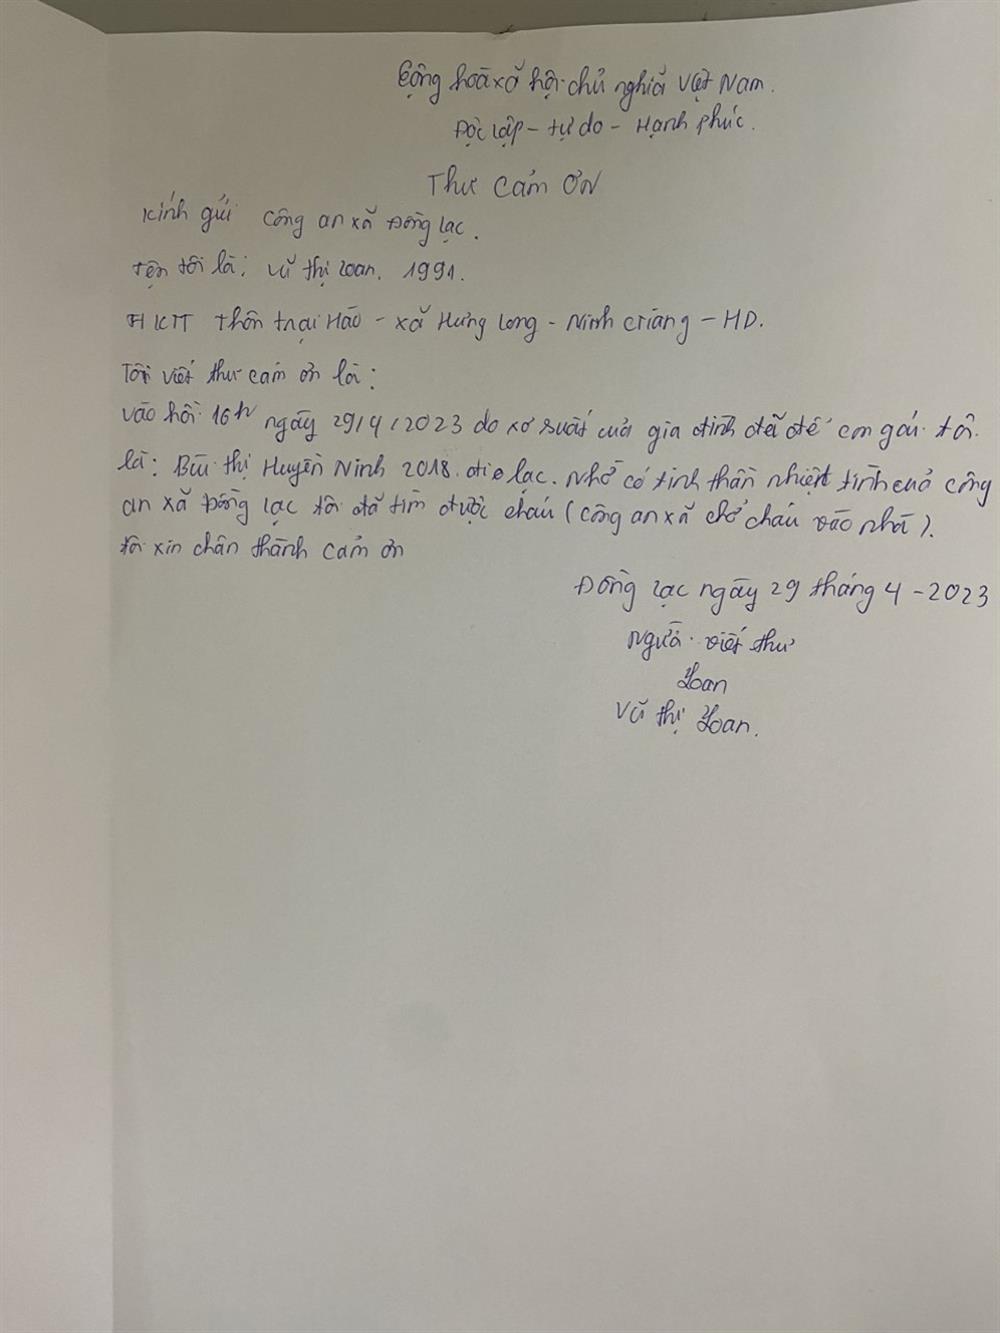 Cộng hoà xã hội chủ nghĩa Việt Nam.
Độc lập - tự do - Hạnh phúc.
Thư cảm ơn
Kính gửi công an xã Đồng lạc.
tên tôi là: Vũ thị Loan. 1991.
HKTT thôn trại Hào - xã Hưng Long - Ninh Giang - HD.
Tôi viết thư cảm ơn là:
vào hồi 16h ngày 29/4/2023 do xơ suất của gia đình đã để con gái tôi
là: Bùi thị Huyền Ninh 2018. đi lạc. Nhờ có tinh thần nhiệt tình của công
an xã Đồng lạc tôi đã tìm được cháu (công an xã chở cháu vào nhà).
tôi xin chân thành cảm ơn
Đồng lạc ngày 29 tháng 4 - 2023
Người viết thư
Loan
Vũ thị Loan.